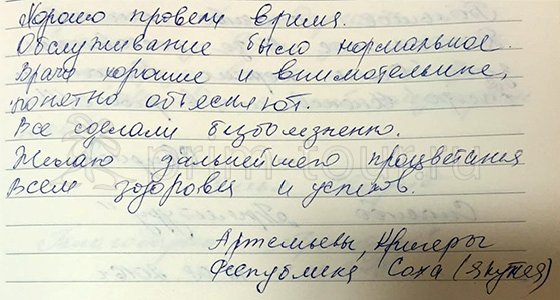 Хорошо провели время.
Обслуживание было нормальное.
Врачи хорошие и внимотельные,
понетно объесняют.
Все сделали безболезненно.
Желаю дальнейшего процветания
Всем здоровья и успехов.
Артемьевы, Кригеры
Республика Саха (Якутия)
prim-tour.ru